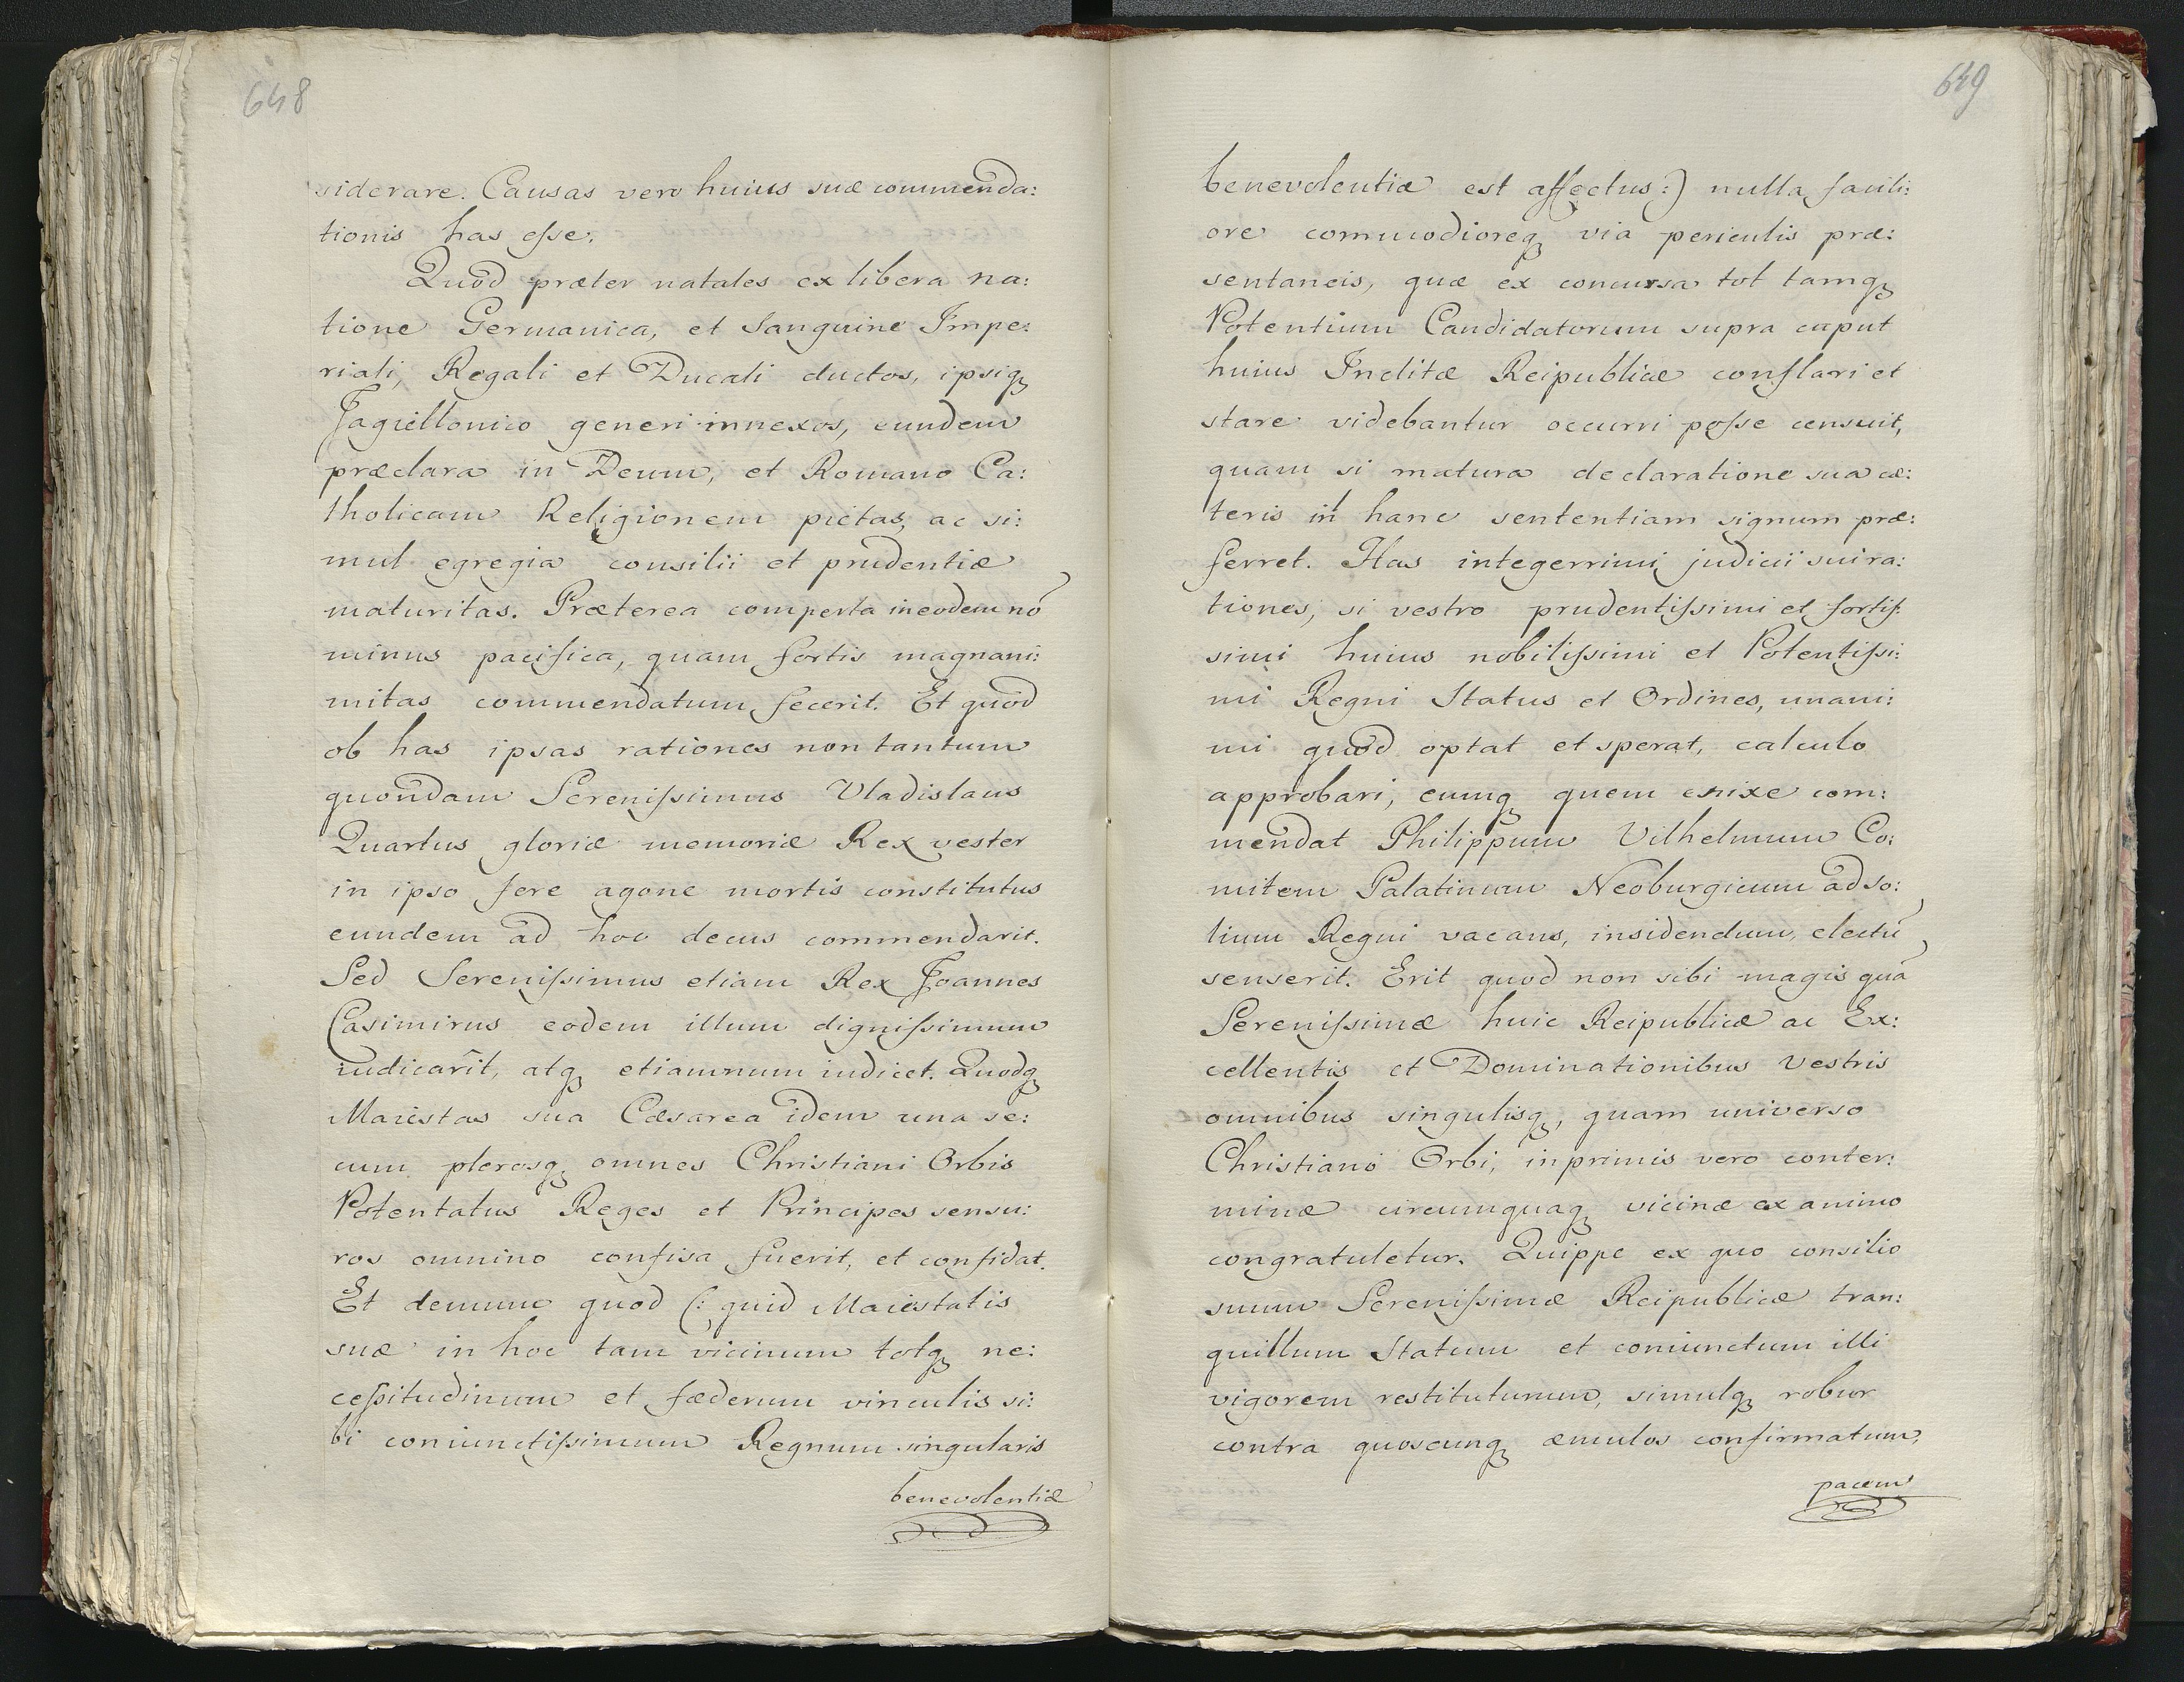 648
siderare. Causas vero huius suæ commenda:
tionis has eſse.
Quod præter natales ex libera na:
tione Germanica, et Sanguine Impe:
riali, Regali et Ducali ductos, ipsiq
Jagiellonico generi innexos, eundem
præclara in Deum, et Romano Ca:
tholicam Religionem pietas, ac si:
mul egregia consilii et prudentiæ
maturitas. Præterea comperta in eodem nō
minus pacifica, quam fortis magnani:
mitas commendatum fecerit. Et quod
ob has ipsas rationes non tantum
quondam Sereniſsimus Vladislaus
Quartus gloriæ memoriæ Rex vester
in ipso fere agone mortis constitutus
eundem ad hoc decus commendarit.
Sed Sereniſsimus etiam Rex Joannes
Casimirus eodem illum digniſsimum
iudicarit, atq etiamnum iudicet. Quodq
Maiestas sua Cæsarea idem una se:
cum plerosq omnes Christiani Orbis
Potentatus Reges et Principes sensu:
ros omnino confisa fuerit, et confidat.
Et demum quod (: quid Maiestatis
suæ in hoc tam vicinum totq ne:
ceſsitudinum et fæderum vinculis si:
bi coniunctiſsimum Regnum singularis
benevolentiæ
649
benevolentiæ est affectus :) nulla facili:
ore commodioreq via periculis præ:
sentaneis, quæ ex concursa tot tamq
Potentium Candidatorum supra caput
huius Inclitæ Reipublicæ conflari et
stare videbantur occurri poſse censuit,
quam si matura declaratione sua cæ:
teris in hanc sententiam signum præ:
ferret. Has integerrimi judicii sui ra:
tiones, si vestro prudentiſsimi et fortiſ:
simi huius nobiliſsimi et Potentiſsi:
mi Regni Status et Ordines, unani:
mi quod optat et sperat, calculo
approbari, eumq quem enixe com:
mendat Philippum Vilhelmum Co:
mitem Palatinum Neoburgicum ad so:
lium Regni vacans, insidendum, electū
senserit. Erit quod non sibi magis quā
Sereniſsimæ huic Reipublicæ ac Ex:
cellentis et Dominationibus Vestris
omnibus singulisq, quam universo
Christiano Orbi, inprimis vero conter:
minæ circumquaq vicinæ ex animo
congratuletur. Quippe ex quo consilio
suum Sereniſsimæ Reipublicæ tran:
quillum Statum et coniunctum illi
vigorem restituturum, simulq robur
contra quoscunq æmulos confirmatum,
pacem